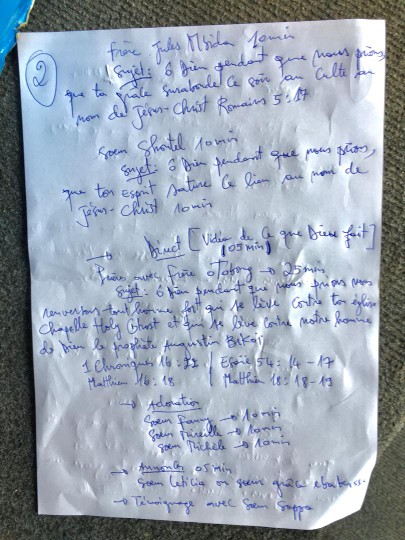 2
Frère Jules 10 min
Sujet : ô Dieu pendant que nous prions,
que ta grâce surabonde ce soir au culte au
nom de Jésus-Christ Romains 5:17
Soeur 10 min
Sujet : ô Dieu pendant que nous prions,
que ton Esprit sature ce lieu au nom de
Jésus-Christ 10 min
→ Direct [Vidéo de ce que Dieu fait]
(05 min)
Prière avec frère → 25 min
Sujet : ô Dieu pendant que nous prions nous
renversons tout homme fort qui se lève contre ton église
Chapelle Holy Ghost et qui se lève contre notre homme
de Dieu le prophète Augustin
1 Chroniques 16 : 22 | Esaïe 54 : 14 - 17
Matthieu 16 : 18 | Matthieu 18 : 18 - 19
→ Adoration
Soeur Fanny → 10 min
Soeur Mireille → 10 min
Soeur Michèle → 10 min
→ Annonces 05 min
Soeur Leticia ou soeur grâce
→ Témoignage avec Soeur